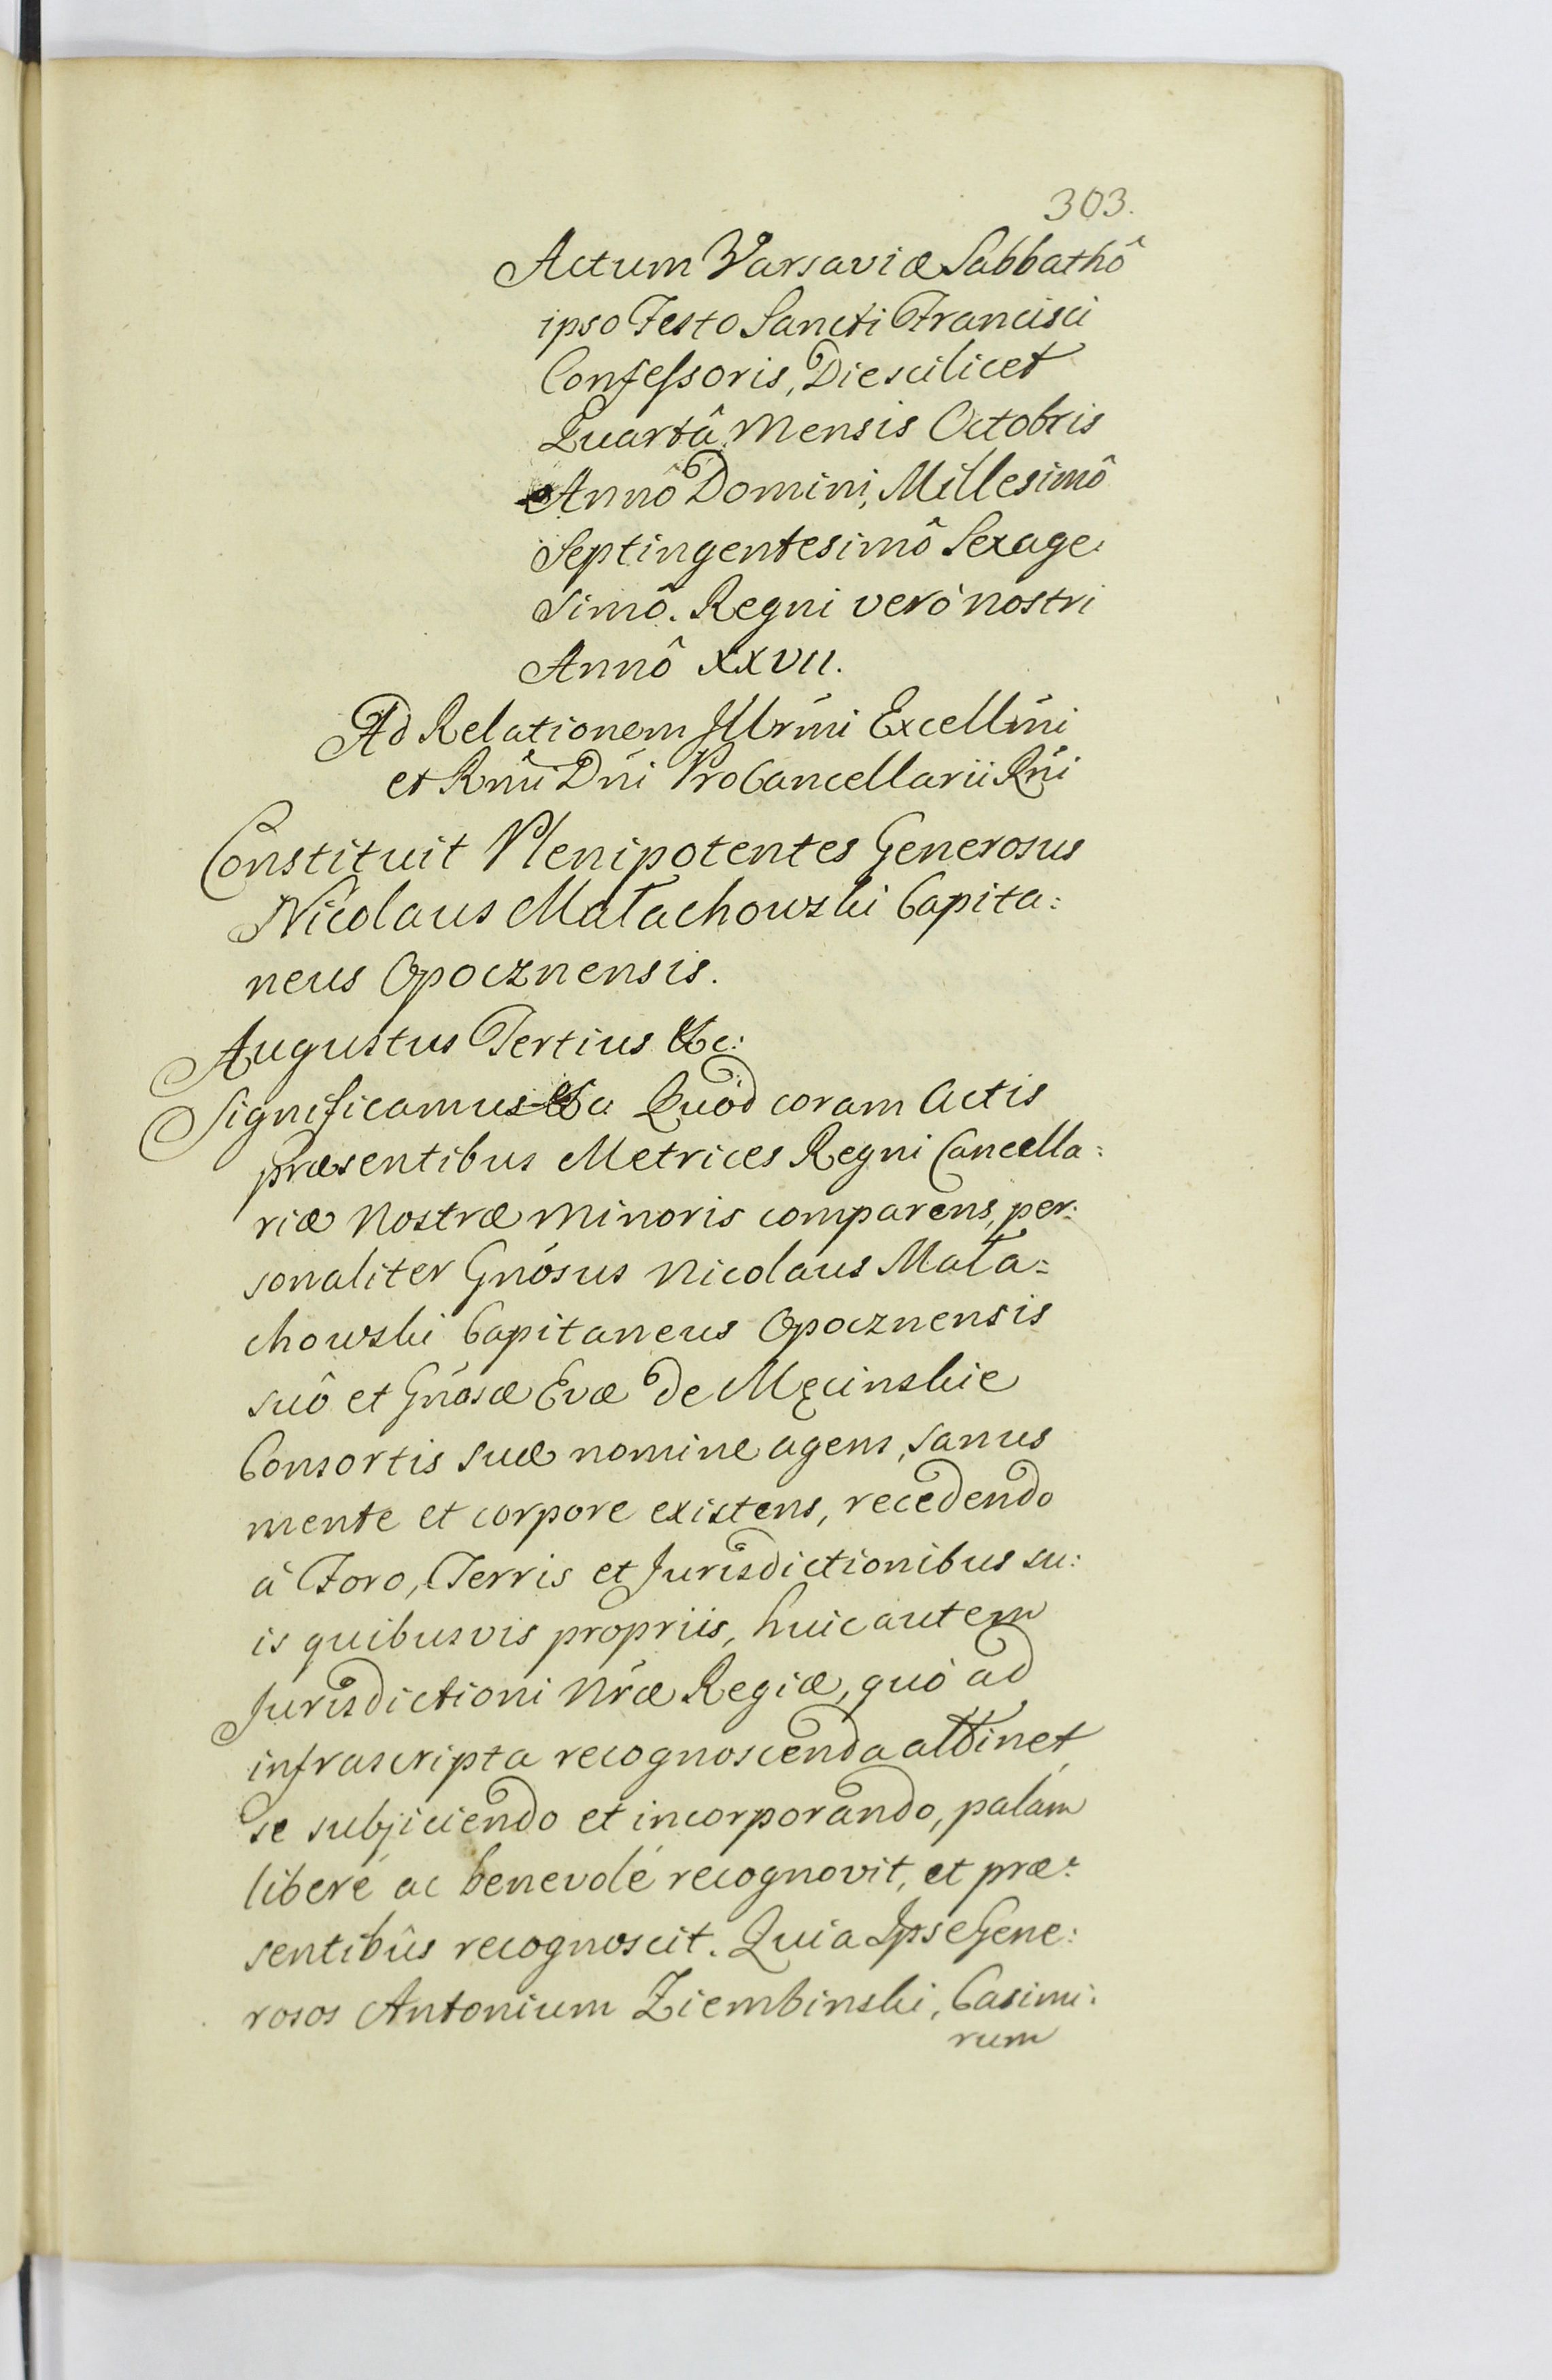 303.
Actum Varsaviæ Sabbathô
ipso Festo Sancti Francisci
Confeſsoris, Die scilicet
Quartâ Mensis Octobris
Annô Domini, Millesimô
Septingentesimô Sexage:
simô. Regni verò nostri
Annô XXVII.
Ad Relationem Illrm̃i Excellm̃i
et Rm̃i Dn̄i ProCancellarii Rn̄i
Constituit Plenipotentes Generosus
Nicolaus Małachowski Capita:
neus Opocznensis.
Augustus Tertius &c:
Significamus &c Quod coram Actis
præsentibus Metrices Regni Cancella:
riæ Nostræ Minoris comparens, per:
sonaliter Gn̄osus Nicolaus Mała:
chowski Capitaneus Opocznensis
suô et Gn̄osæ Evæ de Męcinskie
Consortis suæ nomine agens, sanus
mente et corpore existens, recedendo
à Foro, Terris et Jurisdictionibus su:
is quibusvis propriis, huic autem
Jurisdictioni Nr̃æ Regiæ, quò ad
infrascripta recognoscenda attinet,
se subjiciendo et incorporando, palám
liberé ac benevolé recognovit, et præ:
sentibûs recognoscit. Quia Ipse Gene:
rosos Antonium Ziembinski, Casimi:
rum